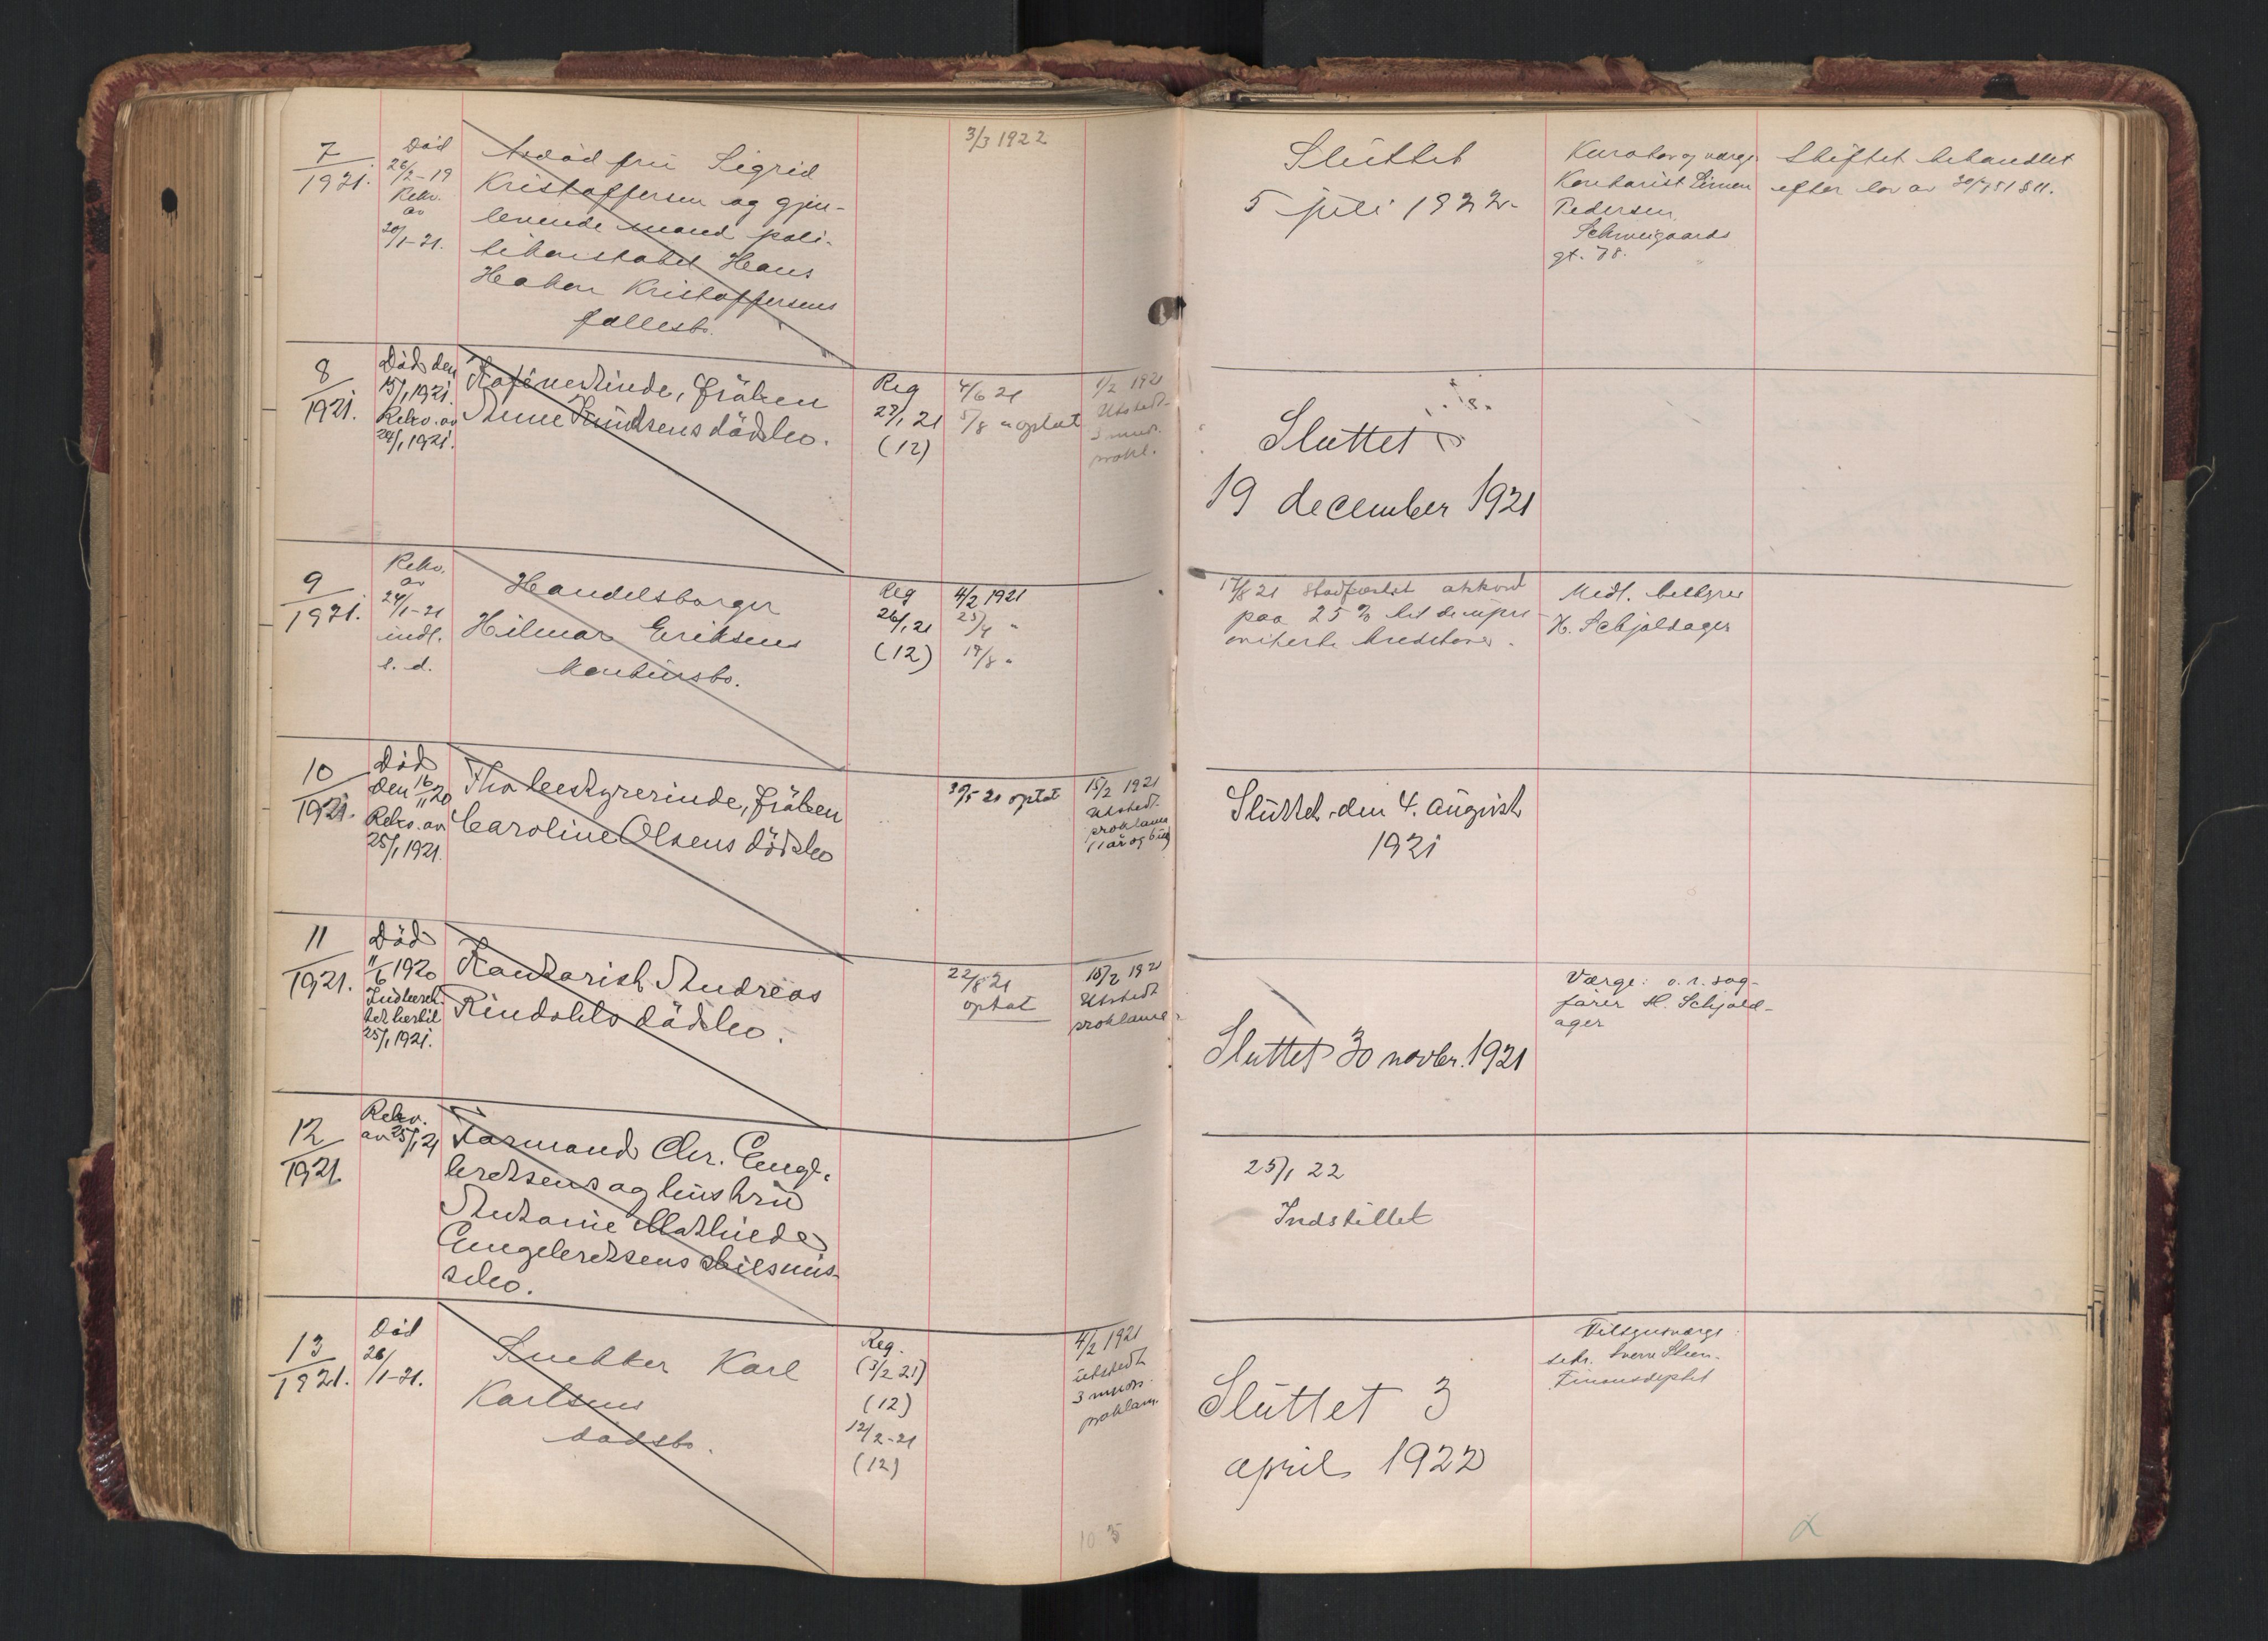 7
1921.
Död
26/2-19
Rekv.
av
20/1-21.
Avdöd fru Sigrid
Kristoffersen og gjen-
levende mand poli-
tikonstabel Hans
Haakon Kristoffersens
fællesbo.
3/3 1922
Sluttet
5 juli 1922.
Kurator og værge
Kontorist Simen
Pedersen,
Schweigaards
gt. 78.
Skiftet behandlet
efter lov av 30/7 51 § 11.
8
1921.
Död den
15/1 1921.
Rekv. av
24/1 1921.
Kafévertinde, fröken
Anne Knudsens dödsbo.
Reg
27/1 21
(12)
4/6 21
5/8 " optat
1/2 1921
Utstedt
3 mnds.
prokl.
Sluttet
19 december 1921
9
1921.
Rekv.
av
24/1-21
indl.
s. d.
Handelsborger
Hilmar Eriksens
konkursbo.
Reg
26/1 21
(12)
4/2 1921
25/4 "
17/8 "
17/8 21 stadfæstet akkord
paa 25 % til de upri-
viligerte kreditorer.
Midl. bestyrer
H. Schjoldager
10
1921.
Död
den 16/11 20
Rekv. av
25/1 1921.
Fhv. bestyrerinde, fröken
Caroline Olsens dödsbo
30/5 21 optat
15/2 1921
Utstedt
proklama
(1 år og 6 u)
Sluttet den 4. august
1921
11
1921.
Död
11/6 1920
Indberet-
tet hertil
25/1 1921.
Kontorist Andreas
Rindahls dödsbo.
22/8 21
optat
15/2 1921
Utstedt
proklama
Sluttet 30 novbr. 1921
Værge: o.r. sag-
förer H. Schjold-
ager
12
1921
Rekv.
av 25/1 21
Formand Chr. Engel-
bretsens og hustru
Antonie Mathilde
Engebretsens skilsmis-
sebo.
25/1 22
Indstillet
13
1921.
Död
26/1-21.
Snekker Karl
Karlsens
dödsbo.
Reg.
(3/2 21)
(12)
12/2-21
(12)
4/2 1921
utstedt
3 mnds.
proklam.
Sluttet 3
april 1922
sekr. Sverre Steen.
Finansdeptet
105